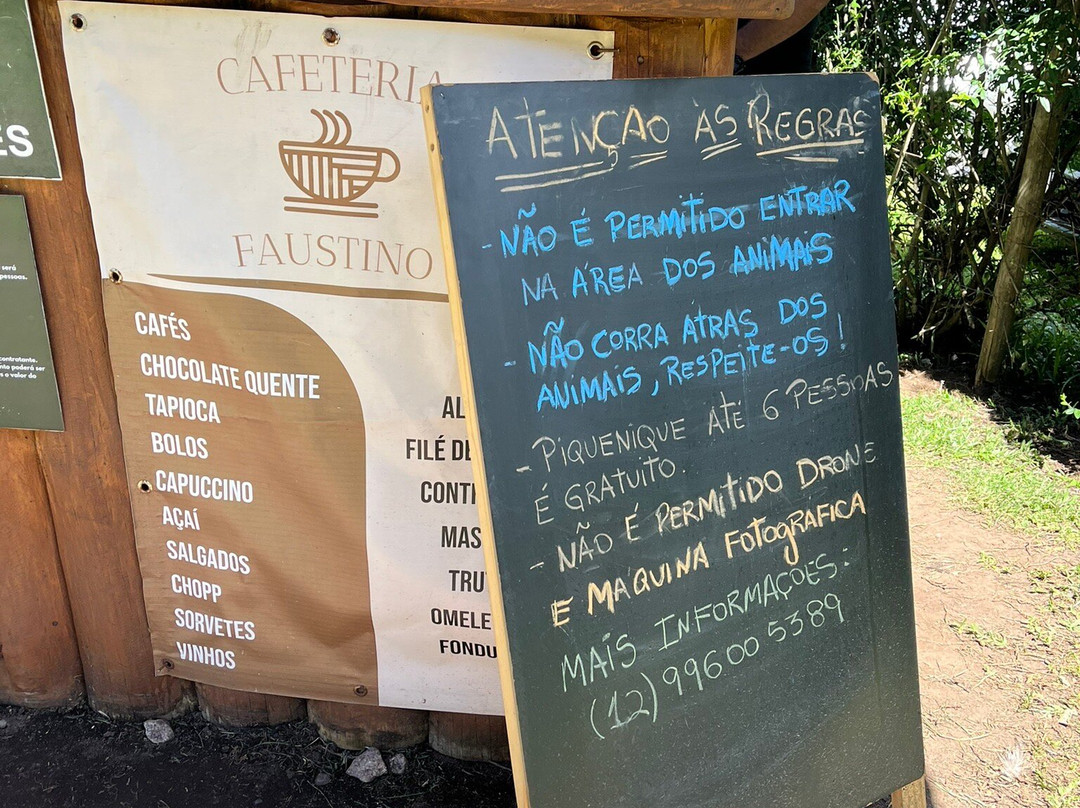 ES
será
pessoas.
contratante.
nto poderá ser
o valor do
CAFETERIA
FAUSTINO
CAFÉS
CHOCOLATE QUENTE
TAPIOCA
BOLOS
CAPUCCINO
AÇAÍ
SALGADOS
CHOPP
SORVETES
VINHOS
AL
FILÉ DE
CONT
MAS
TRU
OMELE
FONDU
ATENÇAO ÀS REGRAS
- NÃO É PERMITIDO ENTRAR
NA ÁREA DOS ANIMAIS
- NÃO CORRA ATRAS DOS
ANIMAIS, RESPEITE-OS!
- PIQUENIQUE ATÉ 6 PESSOAS
É GRATUITO.
- NÃO É PERMITIDO DRONE
E MAQUINA FOTOGRÁFICA
MAIS INFORMAÇÕES:
(12) 99600 5389